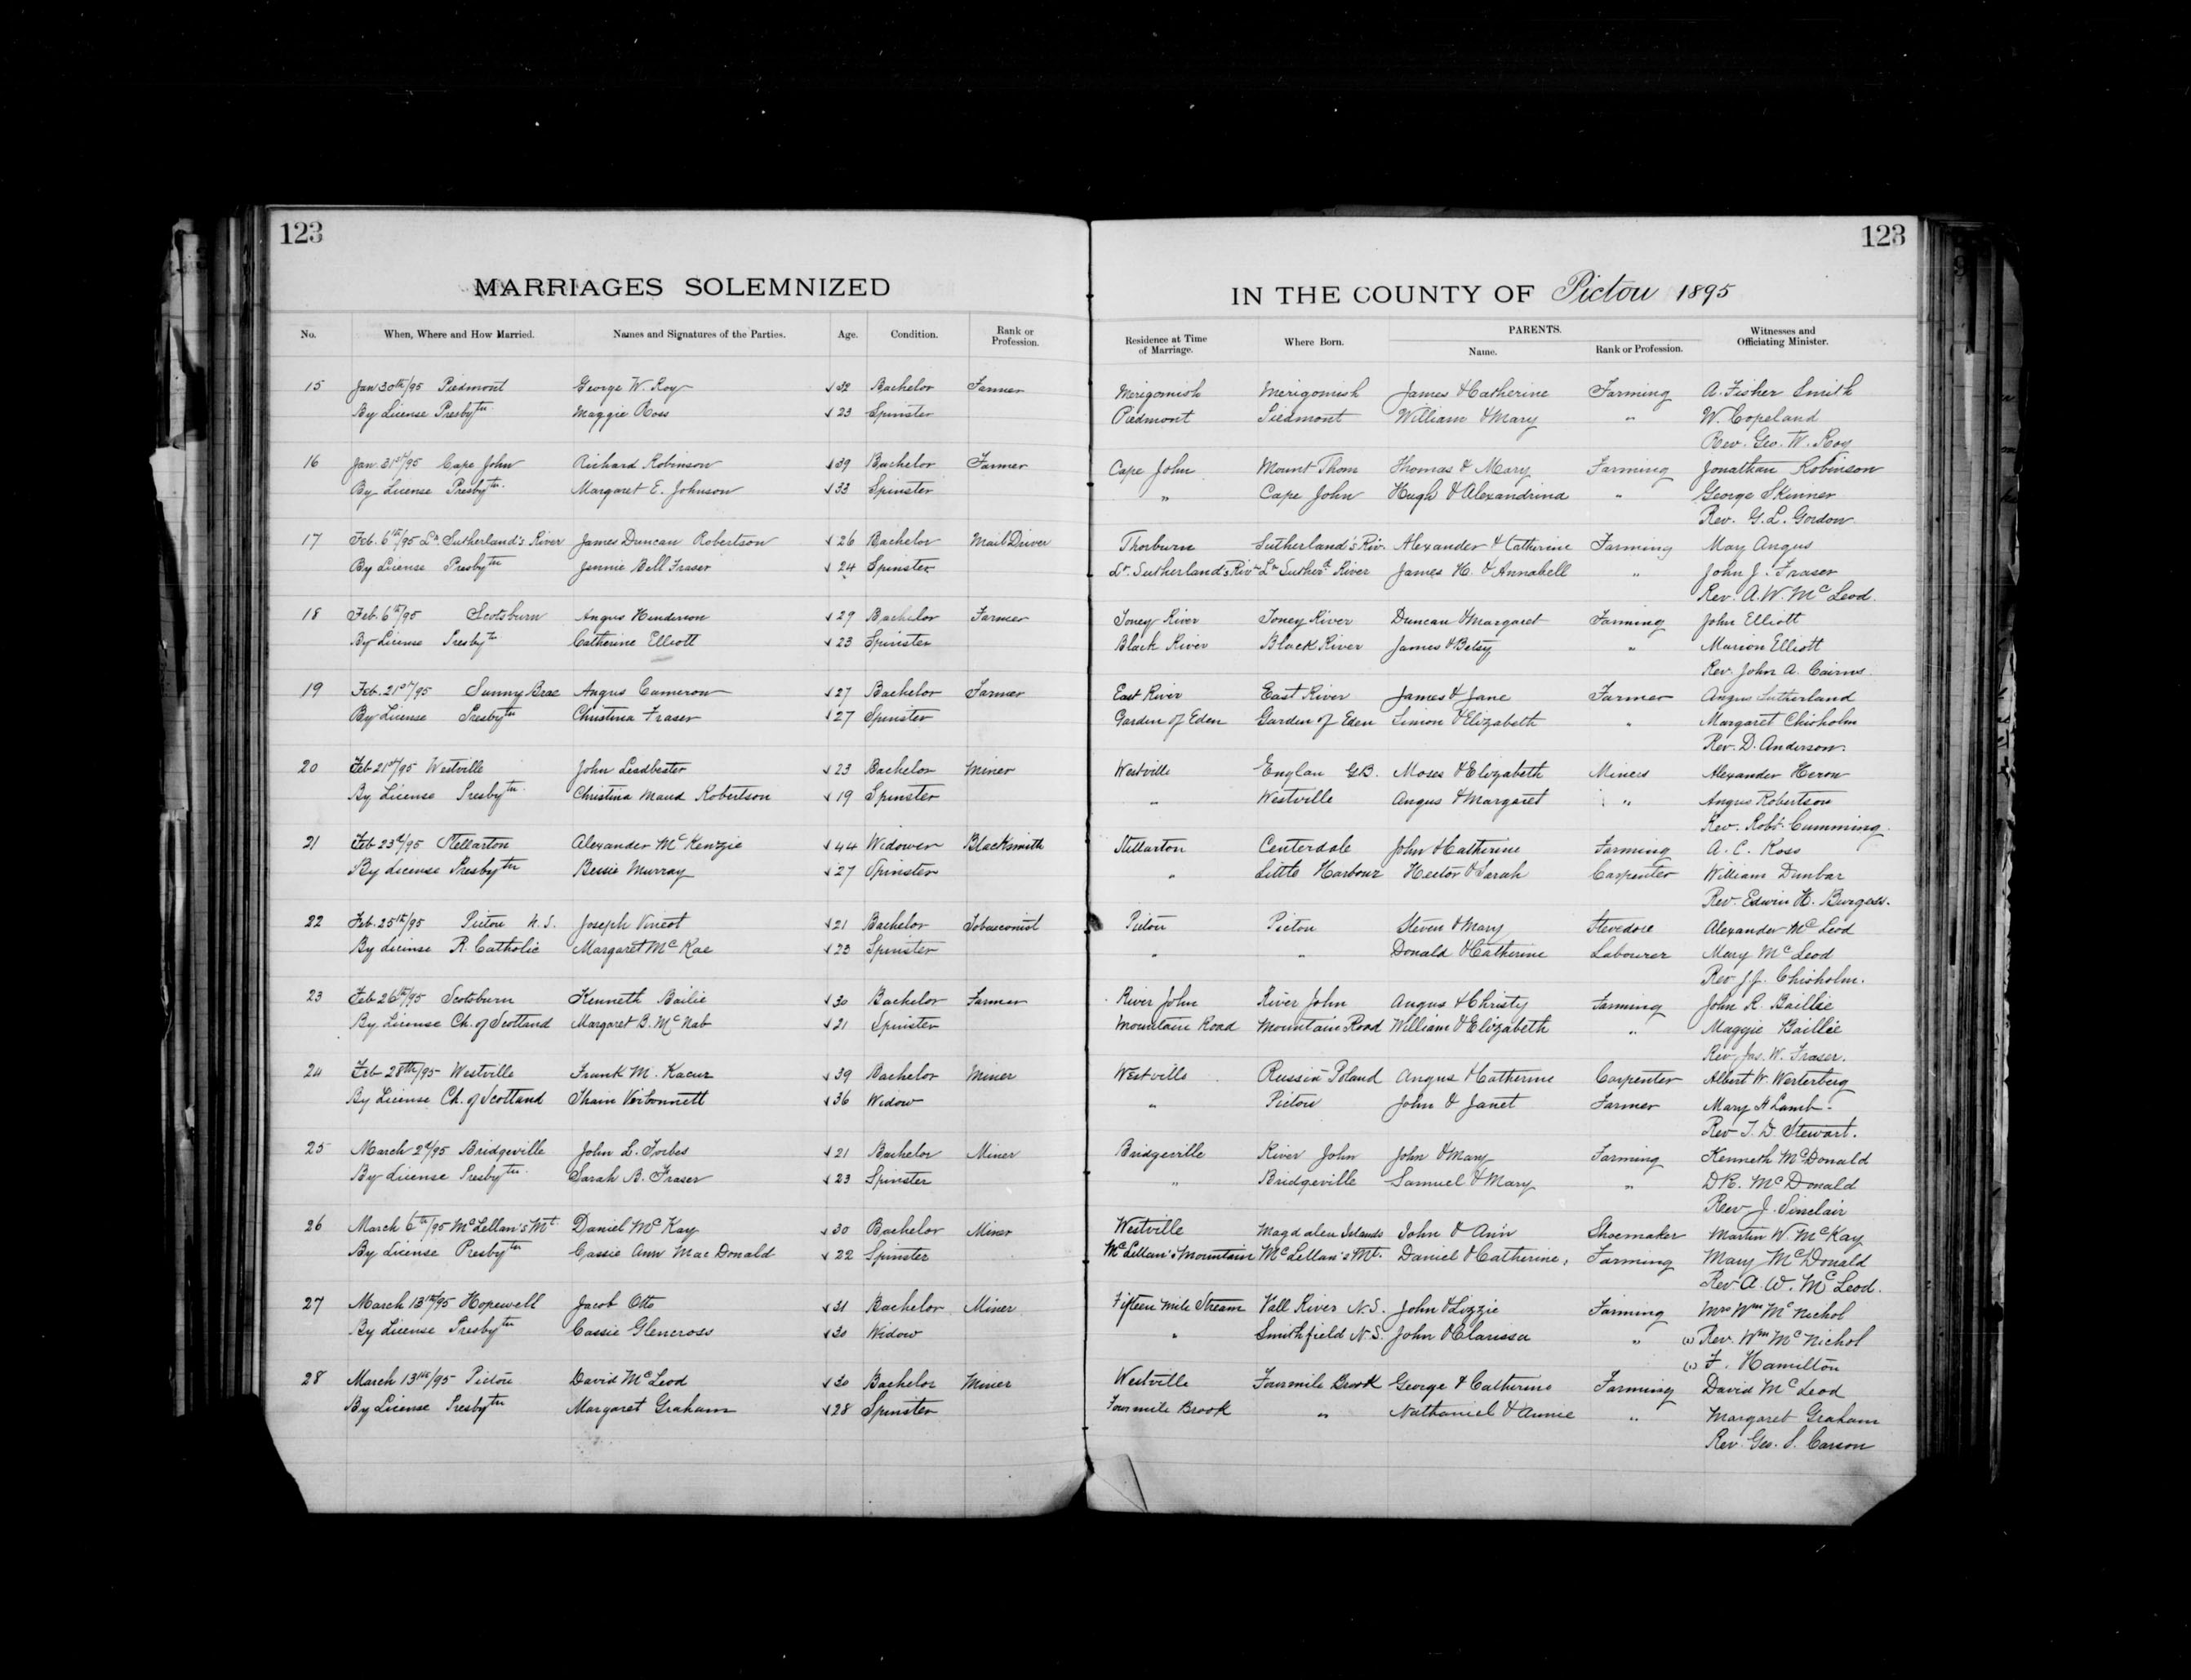 123
123
MARRIAGES SOLEMNIZED
IN THE COUNTY OF Pictou 1895
No. When, Where and How Married. Names and Signatures of the Parties. Age. Condition. Rank or Profession. Residence at Time of Marriage. Where Born. PARENTS. Name. Rank or Profession. Witnesses and Officiating Minister.
15 Jan 30th/95 Piedmont George W. Roy 32 Bachelor Farmer Merigomish Merigomish James & Catherine Farming A. Fisher Smith
By License Presbytn Maggie Ross 23 Spinster Piedmont Piedmont William & Mary " W. Copeland
Rev. Geo. W. Roy
16 Jan. 31st/95 Cape John Richard Robinson 39 Bachelor Farmer Cape John Mount Thom Thomas & Mary Farming Jonathan Robinson
By License Presbytn. Margaret E. Johnson 33 Spinster " Cape John Hugh & Alexandrina " George Skinner
Rev. G. L. Gordon.
17 Feb. 6th/95 Lr. Sutherland's River James Duncan Robertson 26 Bachelor Mail Driver Thorburn Sutherland's Riv. Alexander & Catherine Farming May Angus
By License Presbytn Jennie Bell Fraser 24 Spinster Lr. Sutherland's Rivr Lr Sutherd River James H. & Annabell " John J. Fraser
Rev. A. W. McLeod.
18 Feb. 6th/95 Scotsburn Angus Henderson 29 Bachelor Farmer Toney River Toney River Duncan & Margaret Farming John Elliott
By License Presbytn Catherine Elliott 23 Spinster Black River Black River James & Betsy " Marion Elliott
Rev. John A. Cairns.
19 Feb. 21st/95 Sunny Brae Angus Cameron 27 Bachelor Farmer East River East River James & Jane Farmer Angus Sutherland
By License Presbytn Christina Fraser 27 Spinster Garden of Eden Garden of Eden Simon & Elizabeth " Margaret Chisholm
Rev. D. Anderson.
20 Feb 21st/95 Westville John Leadbeater 23 Bachelor Miner Westville Englan G.B. Moses & Elizabeth Miners Alexander Heron
By License Presbytn. Christina Maud Robertson 19 Spinster " Westville Angus & Margaret " Angus Robertson
Rev. Robt. Cumming.
21 Feb 23d/95 Stellarton Alexander McKenzie 44 Widower Blacksmith Stellarton Centerdale John & Catherine Farming A. C. Ross
By License Presbytn Bessie Murray 27 Spinster " Little Harbour Hector & Sarah Carpenter William Dunbar
Rev Edwin H. Burgess.
22 Feb. 25th/95 Pictou N. S. Joseph Vincot 21 Bachelor Tobacconist Pictou Pictou Steven & Mary Stevedore Alexander McLeod
By License R. Catholic Margaret McKae 23 Spinster " " Donald & Catherine Labourer Mary McLeod
Rev J.J. Chisholm.
23 Feb 26th/95 Scotsburn Kenneth Bailie 30 Bachelor Farmer River John River John Angus & Christy Farming John R. Baillie
By License Ch. of Scotland Margaret B. McNab 21 Spinster Mountain Road Mountain Road William & Elizabeth " Maggie Baillie
Rev Jas. W. Fraser.
24 Feb 28th/95 Westville Frank M. Kacur 39 Bachelor Miner Westville Russia Poland Angus & Catherine Carpenter Albert W. Westerberg
By License Ch. of Scotland 36 Widow " Pictou John & Janet Farmer Mary H Lamb.
Rev T. D. Stewart.
25 March 2d/95 Bridgeville John L. Forbes 21 Bachelor Miner Bridgeville River John John & Mary Farming Kenneth McDonald
By License Presbytn. Sarah B. Fraser 23 Spinster " Bridgeville Samuel & Mary " D R. McDonald
Rev J. Sinclair
26 March 6th/95 McLellan's Mt. Daniel McKay 30 Bachelor Miner Westville Magdalen Islands John & Ann Shoemaker Martin W. McKay
By License Presbytn Cassie Ann MacDonald 22 Spinster McLellan's Mountain McLellan's Mt. Daniel & Catherine, Farming Mary McDonald
Rev A. W. McLeod.
27 March 13th/95 Hopewell Jacob Otto 31 Bachelor Miner Fifteen Mile Stream Vall River N.S. John & Lizzie Farming Mrs Wm McNichol
By License Presbytn Cassie Glencross 30 Widow " Smithfield N.S. John & Clarissa " (2) Rev. Wm McNichol
(1) F. Hamilton
28 March 13th/95 Pictou David McLeod 30 Bachelor Miner Westville Fourmile Brook George & Catherine Farming David McLeod
By License Presbytn Margaret Graham 28 Spinster Fourmile Brook " Nathaniel & Annie " Margaret Graham
Rev. Geo. S. Carson